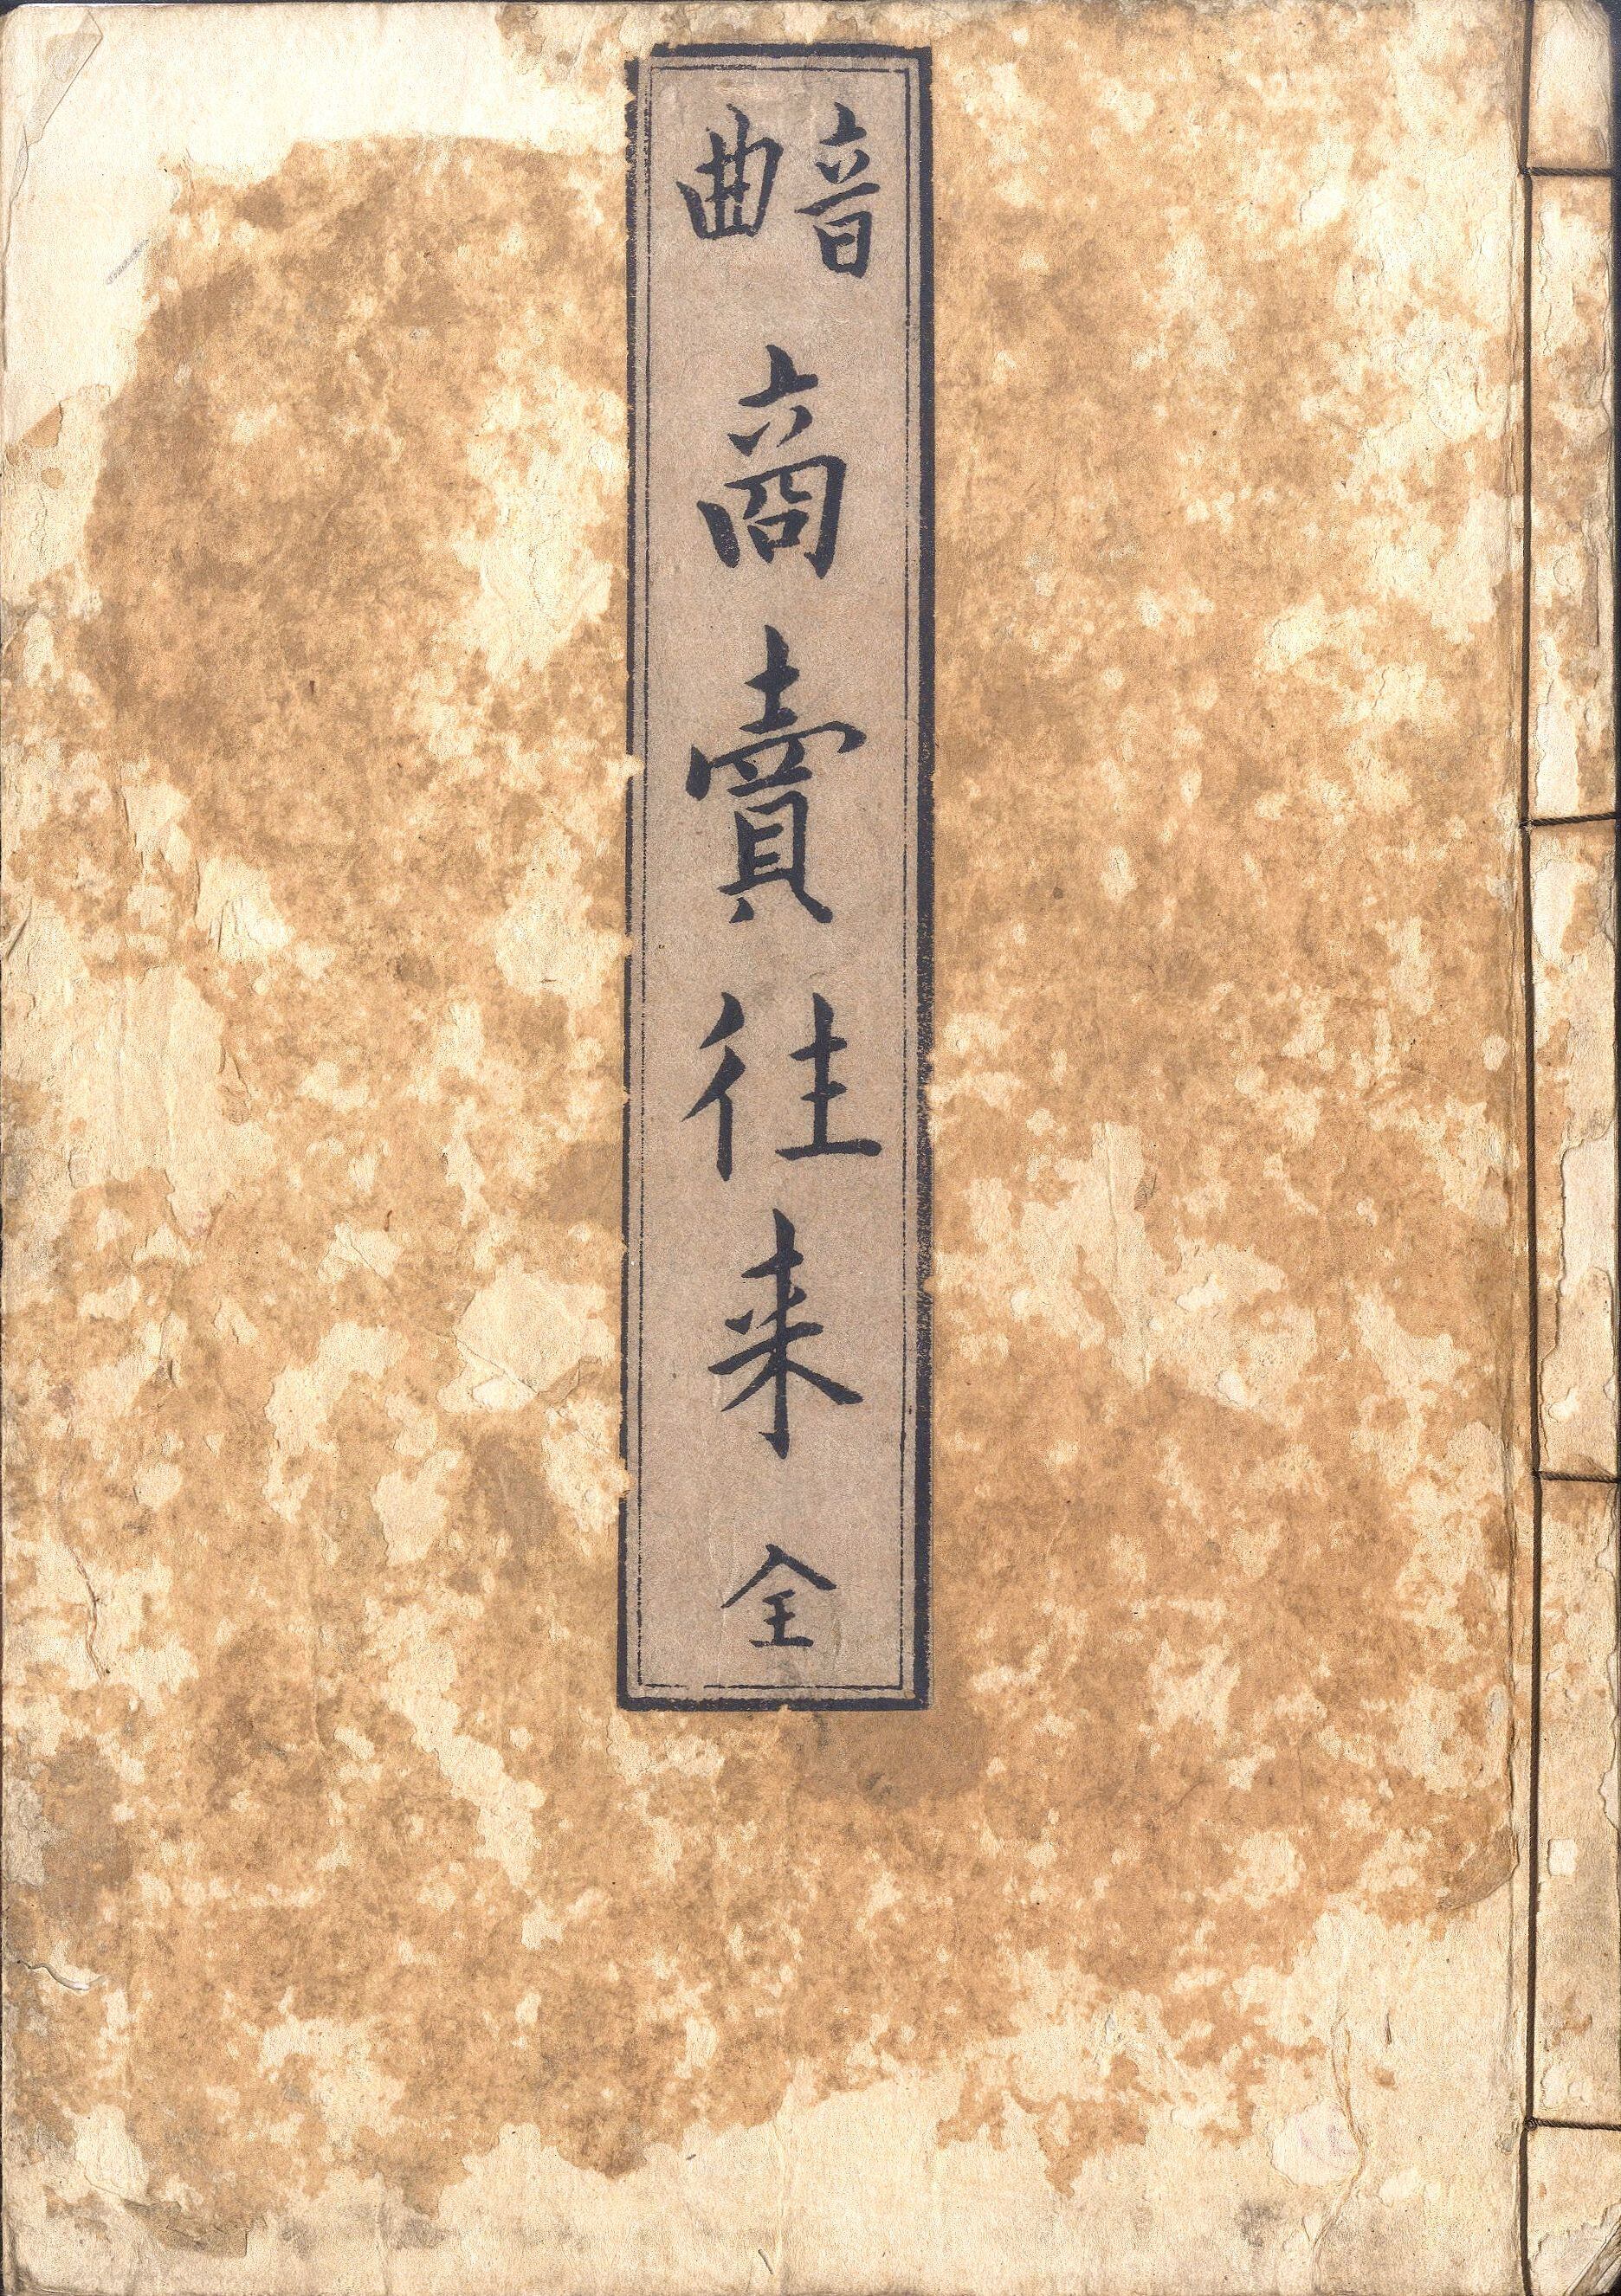 音曲
商賣往来
全